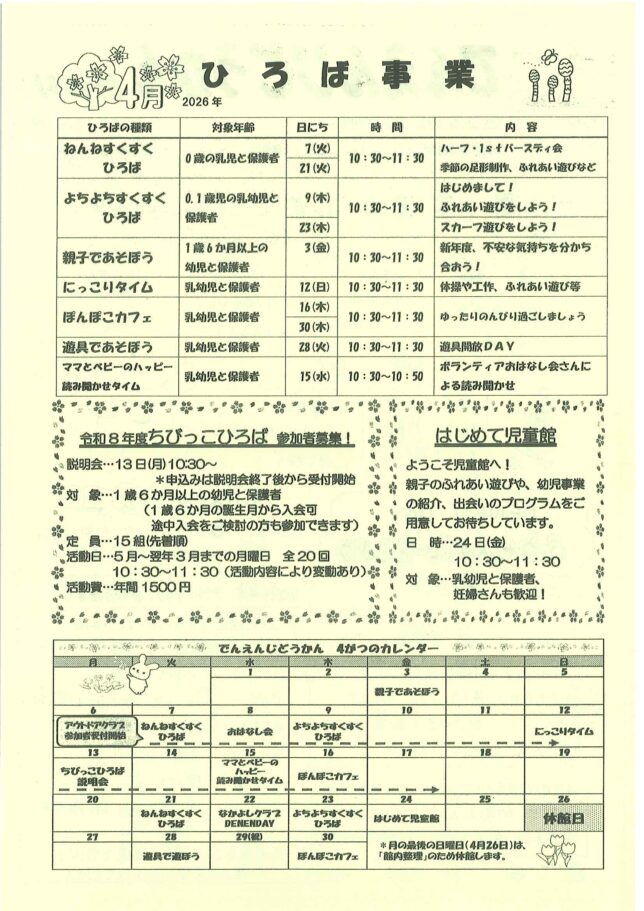 4月
2026年
ひろば事業
ひろばの種類 対象年齢 日にち 時間 内容
ねんねすくすく
ひろば
0歳の乳児と保護者
7(火)
21(火)
10:30～11:30
ハーフ・1stバースディ会
季節の足形制作、ふれあい遊びなど
よちよちすくすく
ひろば
0.1歳児の乳幼児と
保護者
9(木)
23(木)
10:30～11:30
はじめまして!
ふれあい遊びをしよう!
スカーフ遊びをしよう!
親子であそぼう
1歳6か月以上の
幼児と保護者
3(金)
10:30～11:30
新年度、不安な気持ちを分かち
合おう!
にっこりタイム 乳幼児と保護者 12(日) 10:30～11:30 体操や工作、ふれあい遊び等
ぽんぽこカフェ 乳幼児と保護者
16(木)
30(木)
10:30～11:30 ゆったりのんびり過ごしましょう
遊具であそぼう 乳幼児と保護者 28(火) 10:30～11:30 遊具開放DAY
ママとベビーのハッピー
読み聞かせタイム
乳幼児と保護者 15(水) 10:30～10:50
ボランティアおはなし会さんに
よる読み聞かせ
令和8年度ちびっこひろば 参加者募集!
説明会…13日(月)10:30～
*申込みは説明会終了後から受付開始
対 象…1歳6か月以上の幼児と保護者
(1歳6か月の誕生月から入会可
途中入会をご検討の方も参加できます)
定 員…15組(先着順)
活動日…5月～翌年3月までの月曜日 全20回
10:30～11:30(活動内容により変動あり)
活動費…年間1500円
はじめて児童館
ようこそ児童館へ!
親子のふれあい遊びや、幼児事業
の紹介、出会いのプログラムをご
用意してお待ちしています。
日 時…24日(金)
10:30～11:30
対 象…乳幼児と保護者、
妊婦さんも歓迎!
でんえんじどうかん 4がつのカレンダー
月 火 水 木 金 土 日
1 2 3 4 5
親子であそぼう
6 7 8 9 10 11 12
アウトドアクラブ
参加者受付開始
ねんねすくすく
ひろば
おはなし会
よちよちすくすく
ひろば
にっこりタイム
13 14 15 16 17 18 19
ちびっこひろば
説明会
ママとベビーの
ハッピー
読み聞かせタイム
ぽんぽこカフェ
20 21 22 23 24 25 26
ねんねすくすく
ひろば
なかよしクラブ
DENENDAY
よちよちすくすく
ひろば
はじめて児童館
休館日
27 28 29(祝) 30
遊具で遊ぼう
ぽんぽこカフェ
*月の最後の日曜日(4月26日)は、
「館内整理」のため休館します。